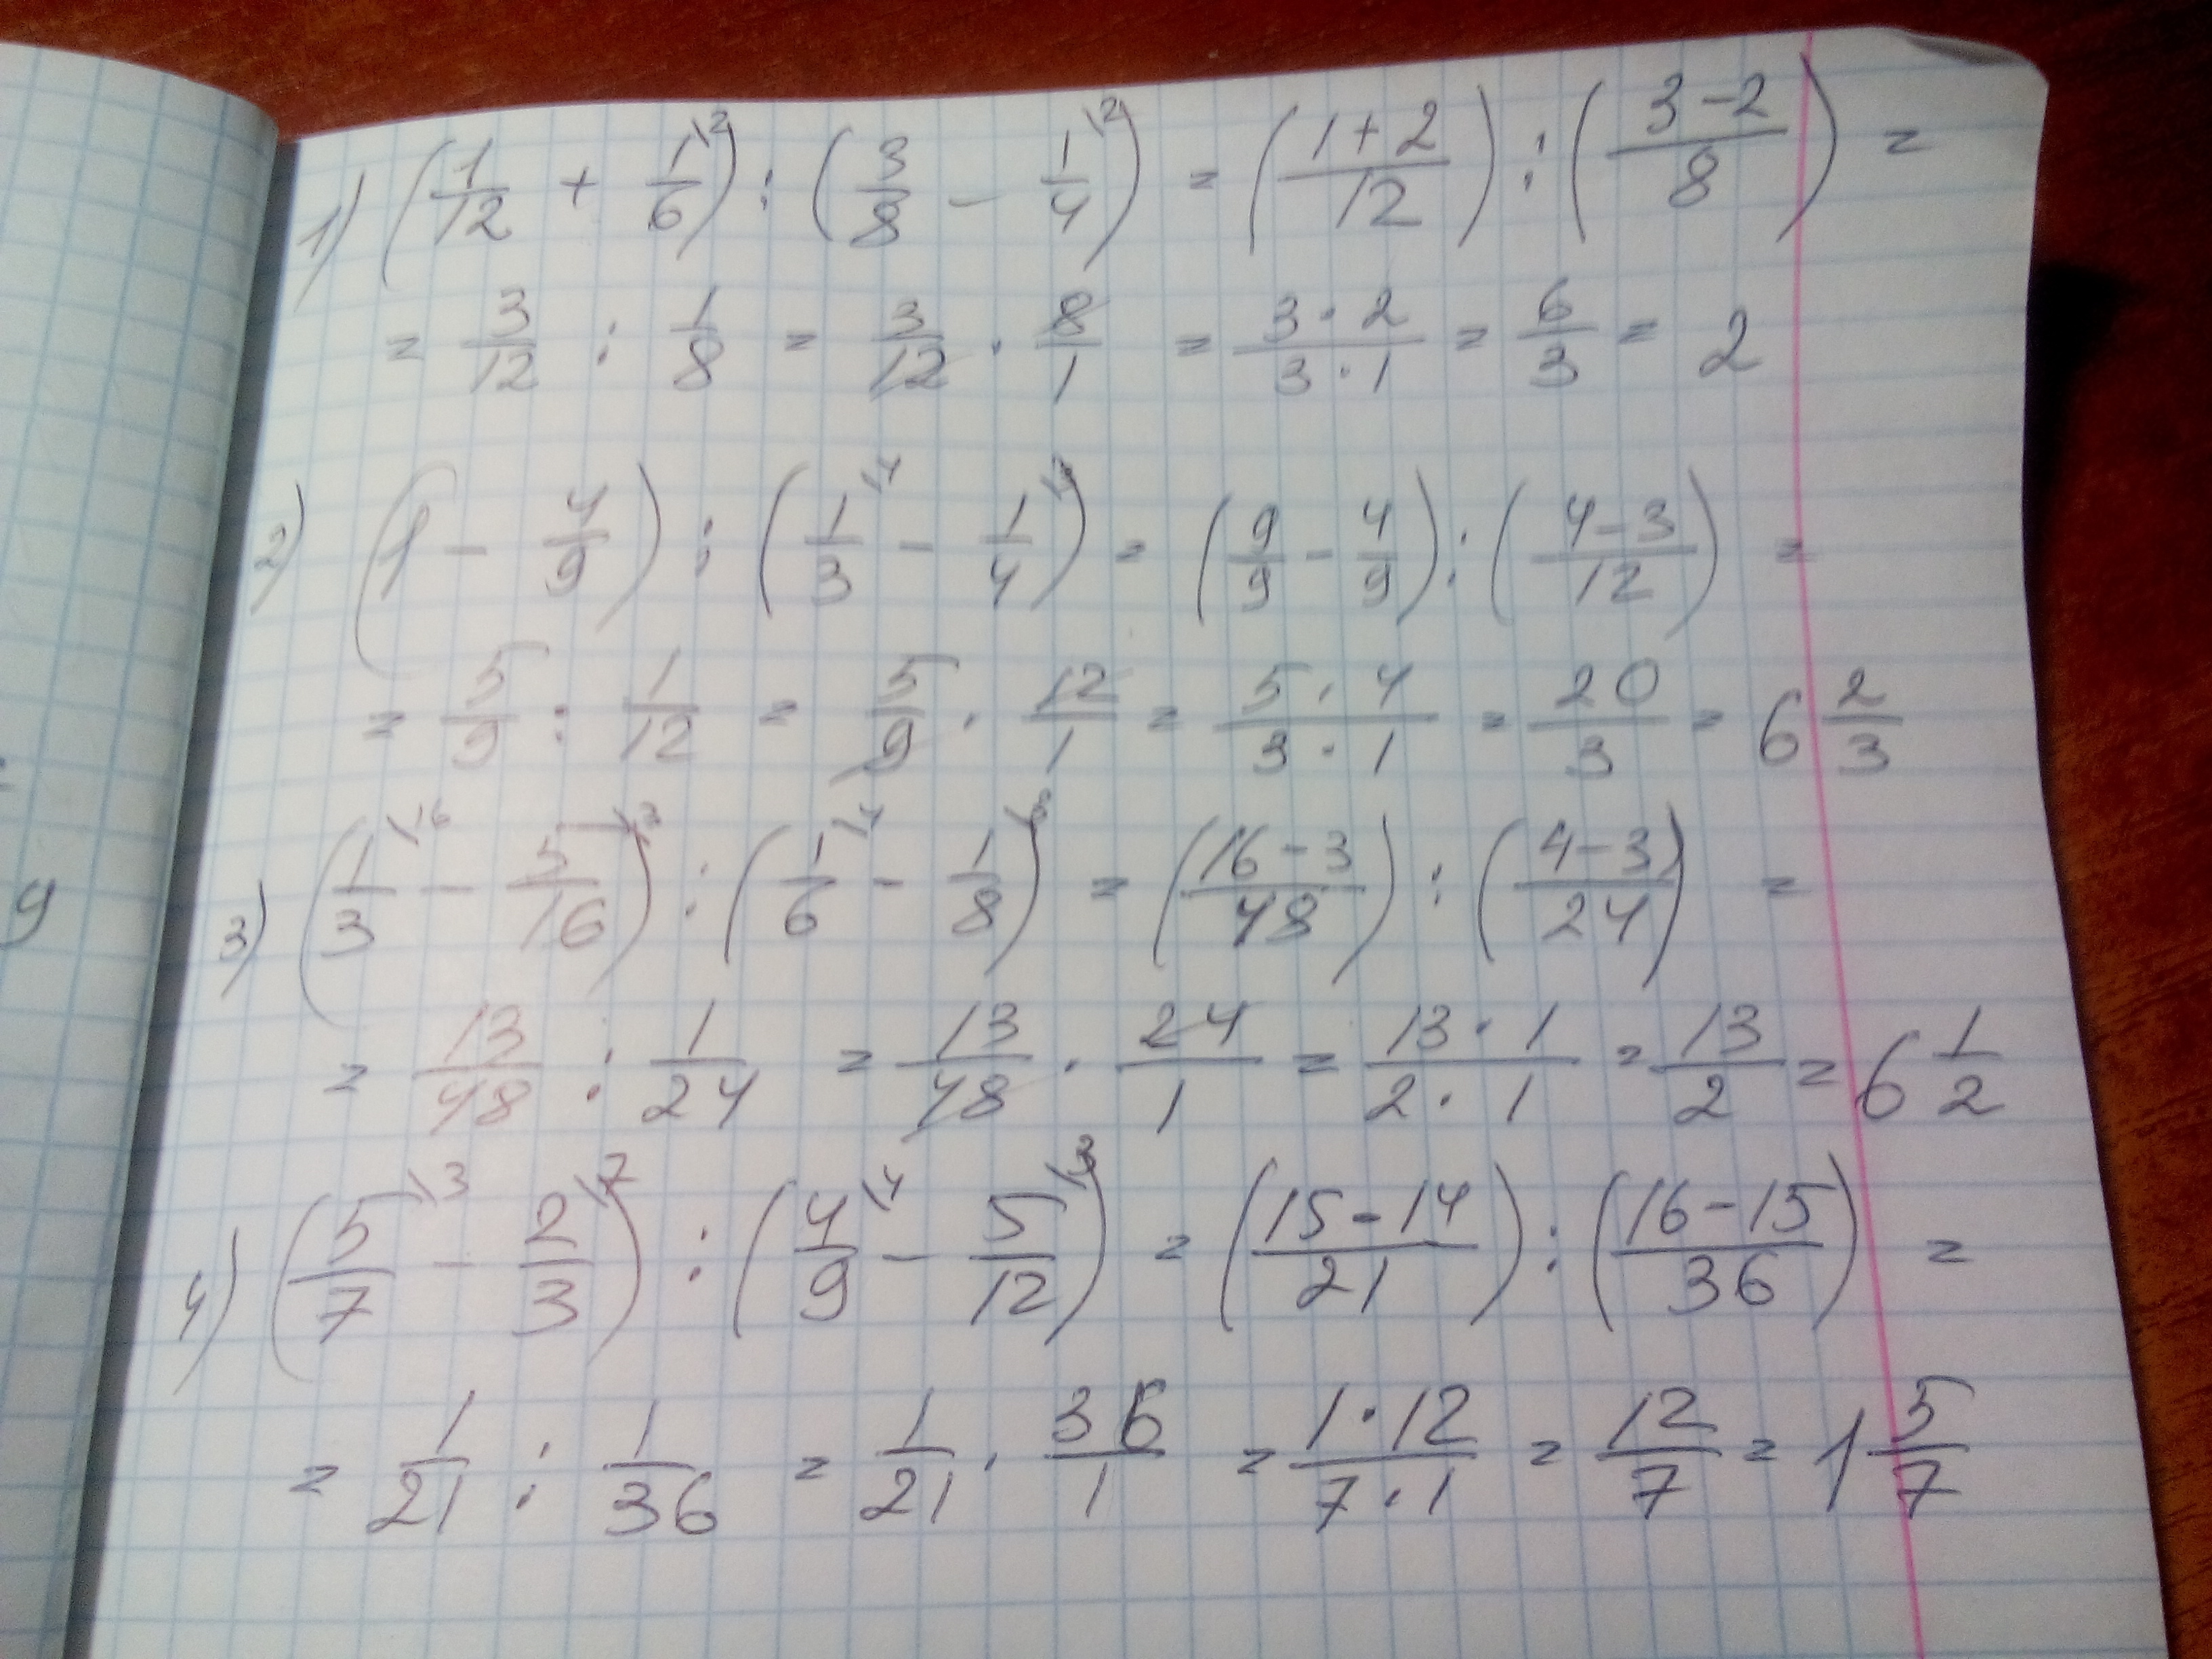 1) (1/12 + 1\2/6) : (3/8 - 1\2/4) = ((1+2)/12) : ((3-2)/8) =
= 3/12 : 1/8 = 3/12 · 8/1 = (3·2)/(3·1) = 6/3 = 2
2) (1 - 4/9) : (1\4/3 - 1\3/4) = (9/9 - 4/9) : ((4-3)/12) =
= 5/9 : 1/12 = 5/9 · 12/1 = (5·4)/(3·1) = 20/3 = 6 2/3
9
3) (1\16/3 - 5\3/16) : (1\4/6 - 1\3/8) = ((16-3)/48) : ((4-3)/24) =
= 13/48 : 1/24 = 13/48 · 24/1 = (13·1)/(2·1) = 13/2 = 6 1/2
4) (5\3/7 - 2\7/3) : (4\4/9 - 5\3/12) = ((15-14)/21) : ((16-15)/36) =
= 1/21 : 1/36 = 1/21 · 36/1 = (1·12)/(7·1) = 12/7 = 1 5/7